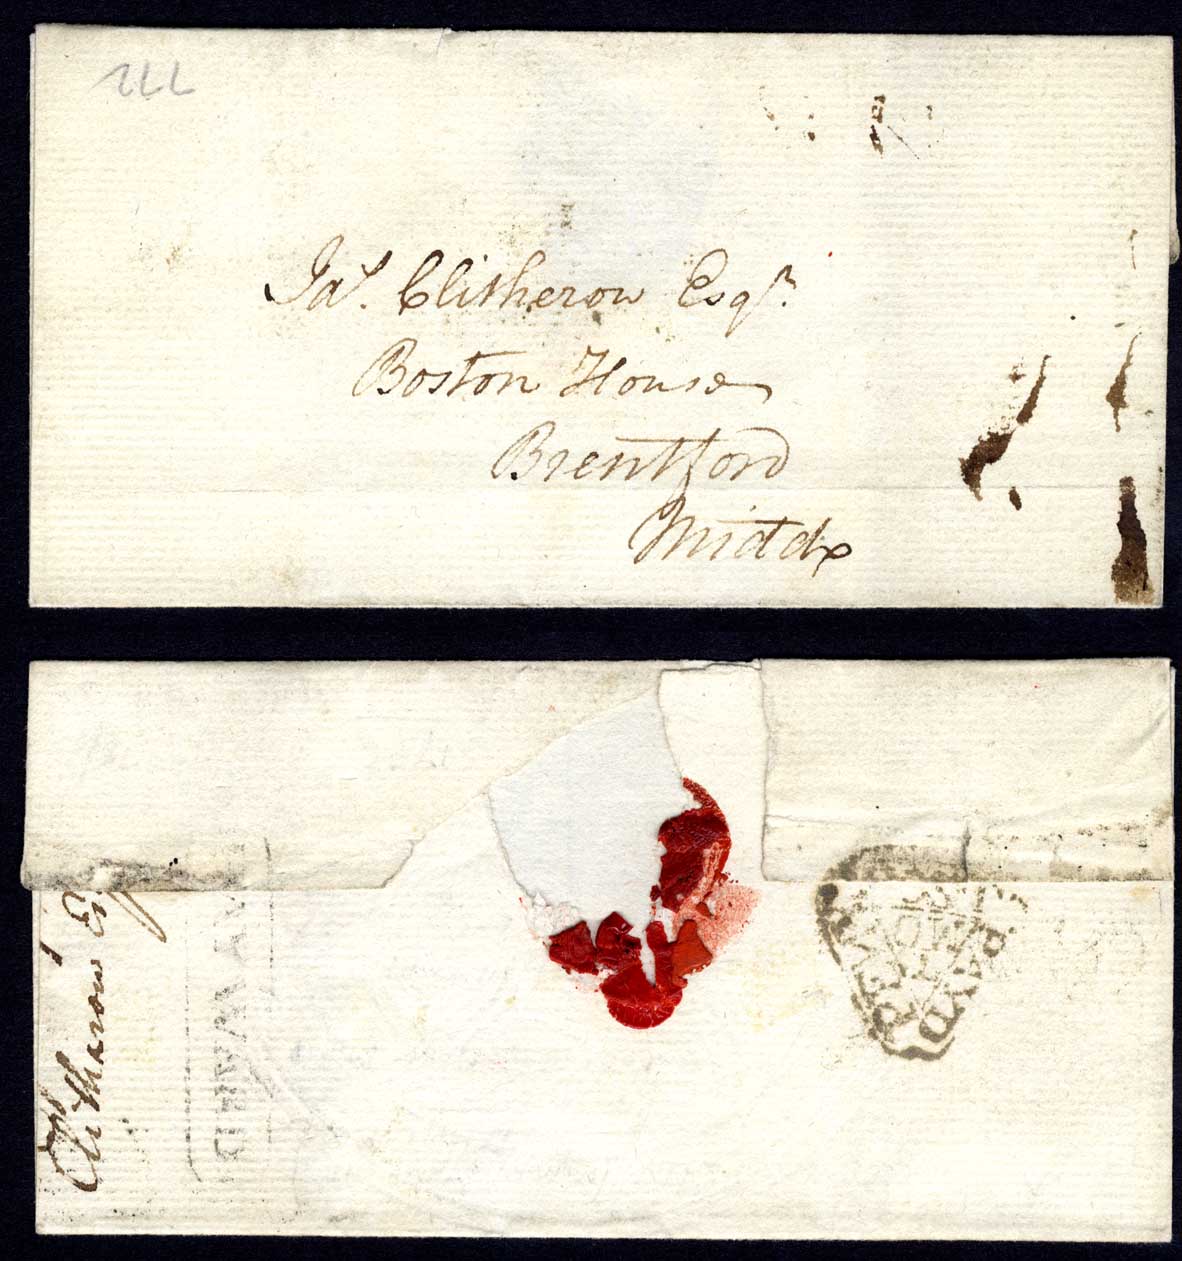 Jas. Clitherow Esqr.
Boston House
Brentford
Middx
Clitharow Esq
PENY
PAYD